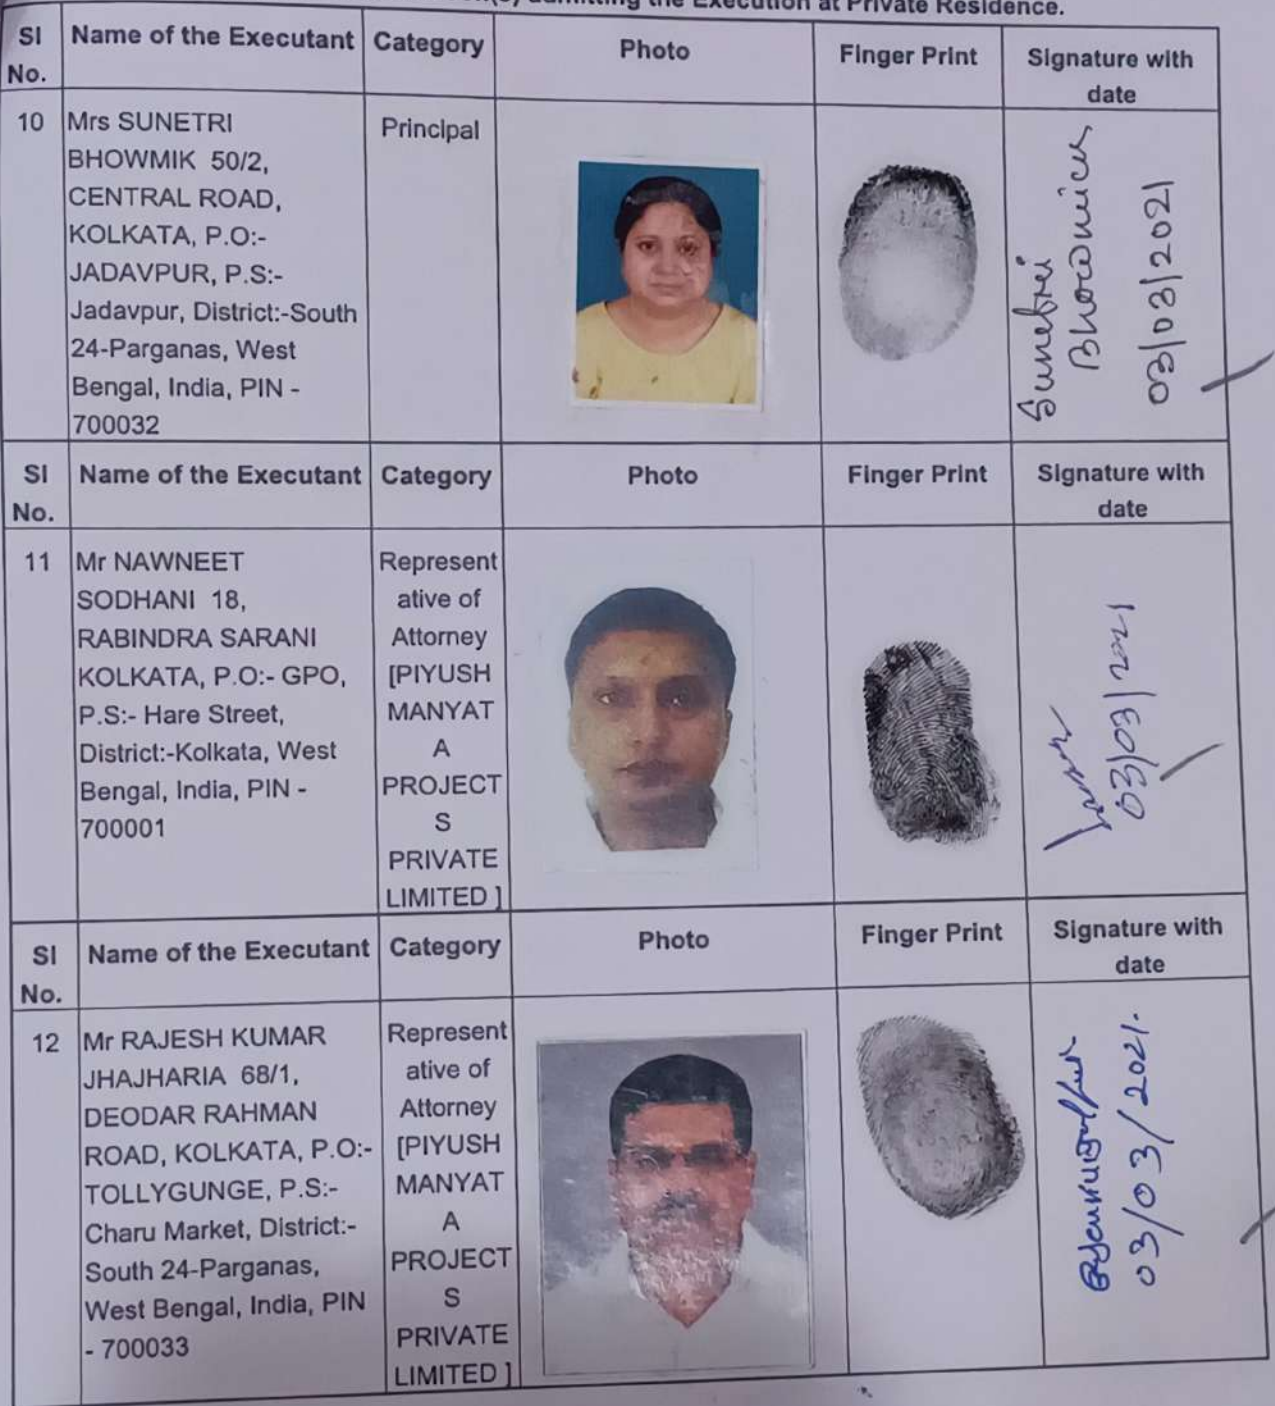 the Execution at Private Residence.
SI No. Name of the Executant Category Photo Finger Print Signature with date
10 Mrs SUNETRI Principal
BHOWMIK 50/2,
CENTRAL ROAD,
KOLKATA, P.O:-
JADAVPUR, P.S:-
Jadavpur, District:-South
24-Parganas, West
Bengal, India, PIN -
700032
Sunetri
Bhowmick
03/03/2021
SI No. Name of the Executant Category Photo Finger Print Signature with date
11 Mr NAWNEET
SODHANI 18,
RABINDRA SARANI
KOLKATA, P.O:- GPO,
P.S:- Hare Street,
District:-Kolkata, West
Bengal, India, PIN -
700001
Represent
ative of
Attorney
[PIYUSH
MANYAT
A
PROJECT
S
PRIVATE
LIMITED ]
03/03/2021
SI No. Name of the Executant Category Photo Finger Print Signature with date
12 Mr RAJESH KUMAR
JHAJHARIA 68/1,
DEODAR RAHMAN
ROAD, KOLKATA, P.O:-
TOLLYGUNGE, P.S:-
Charu Market, District:-
South 24-Parganas,
West Bengal, India, PIN
- 700033
Represent
ative of
Attorney
[PIYUSH
MANYAT
A
PROJECT
S
PRIVATE
LIMITED ]
03/03/2021.